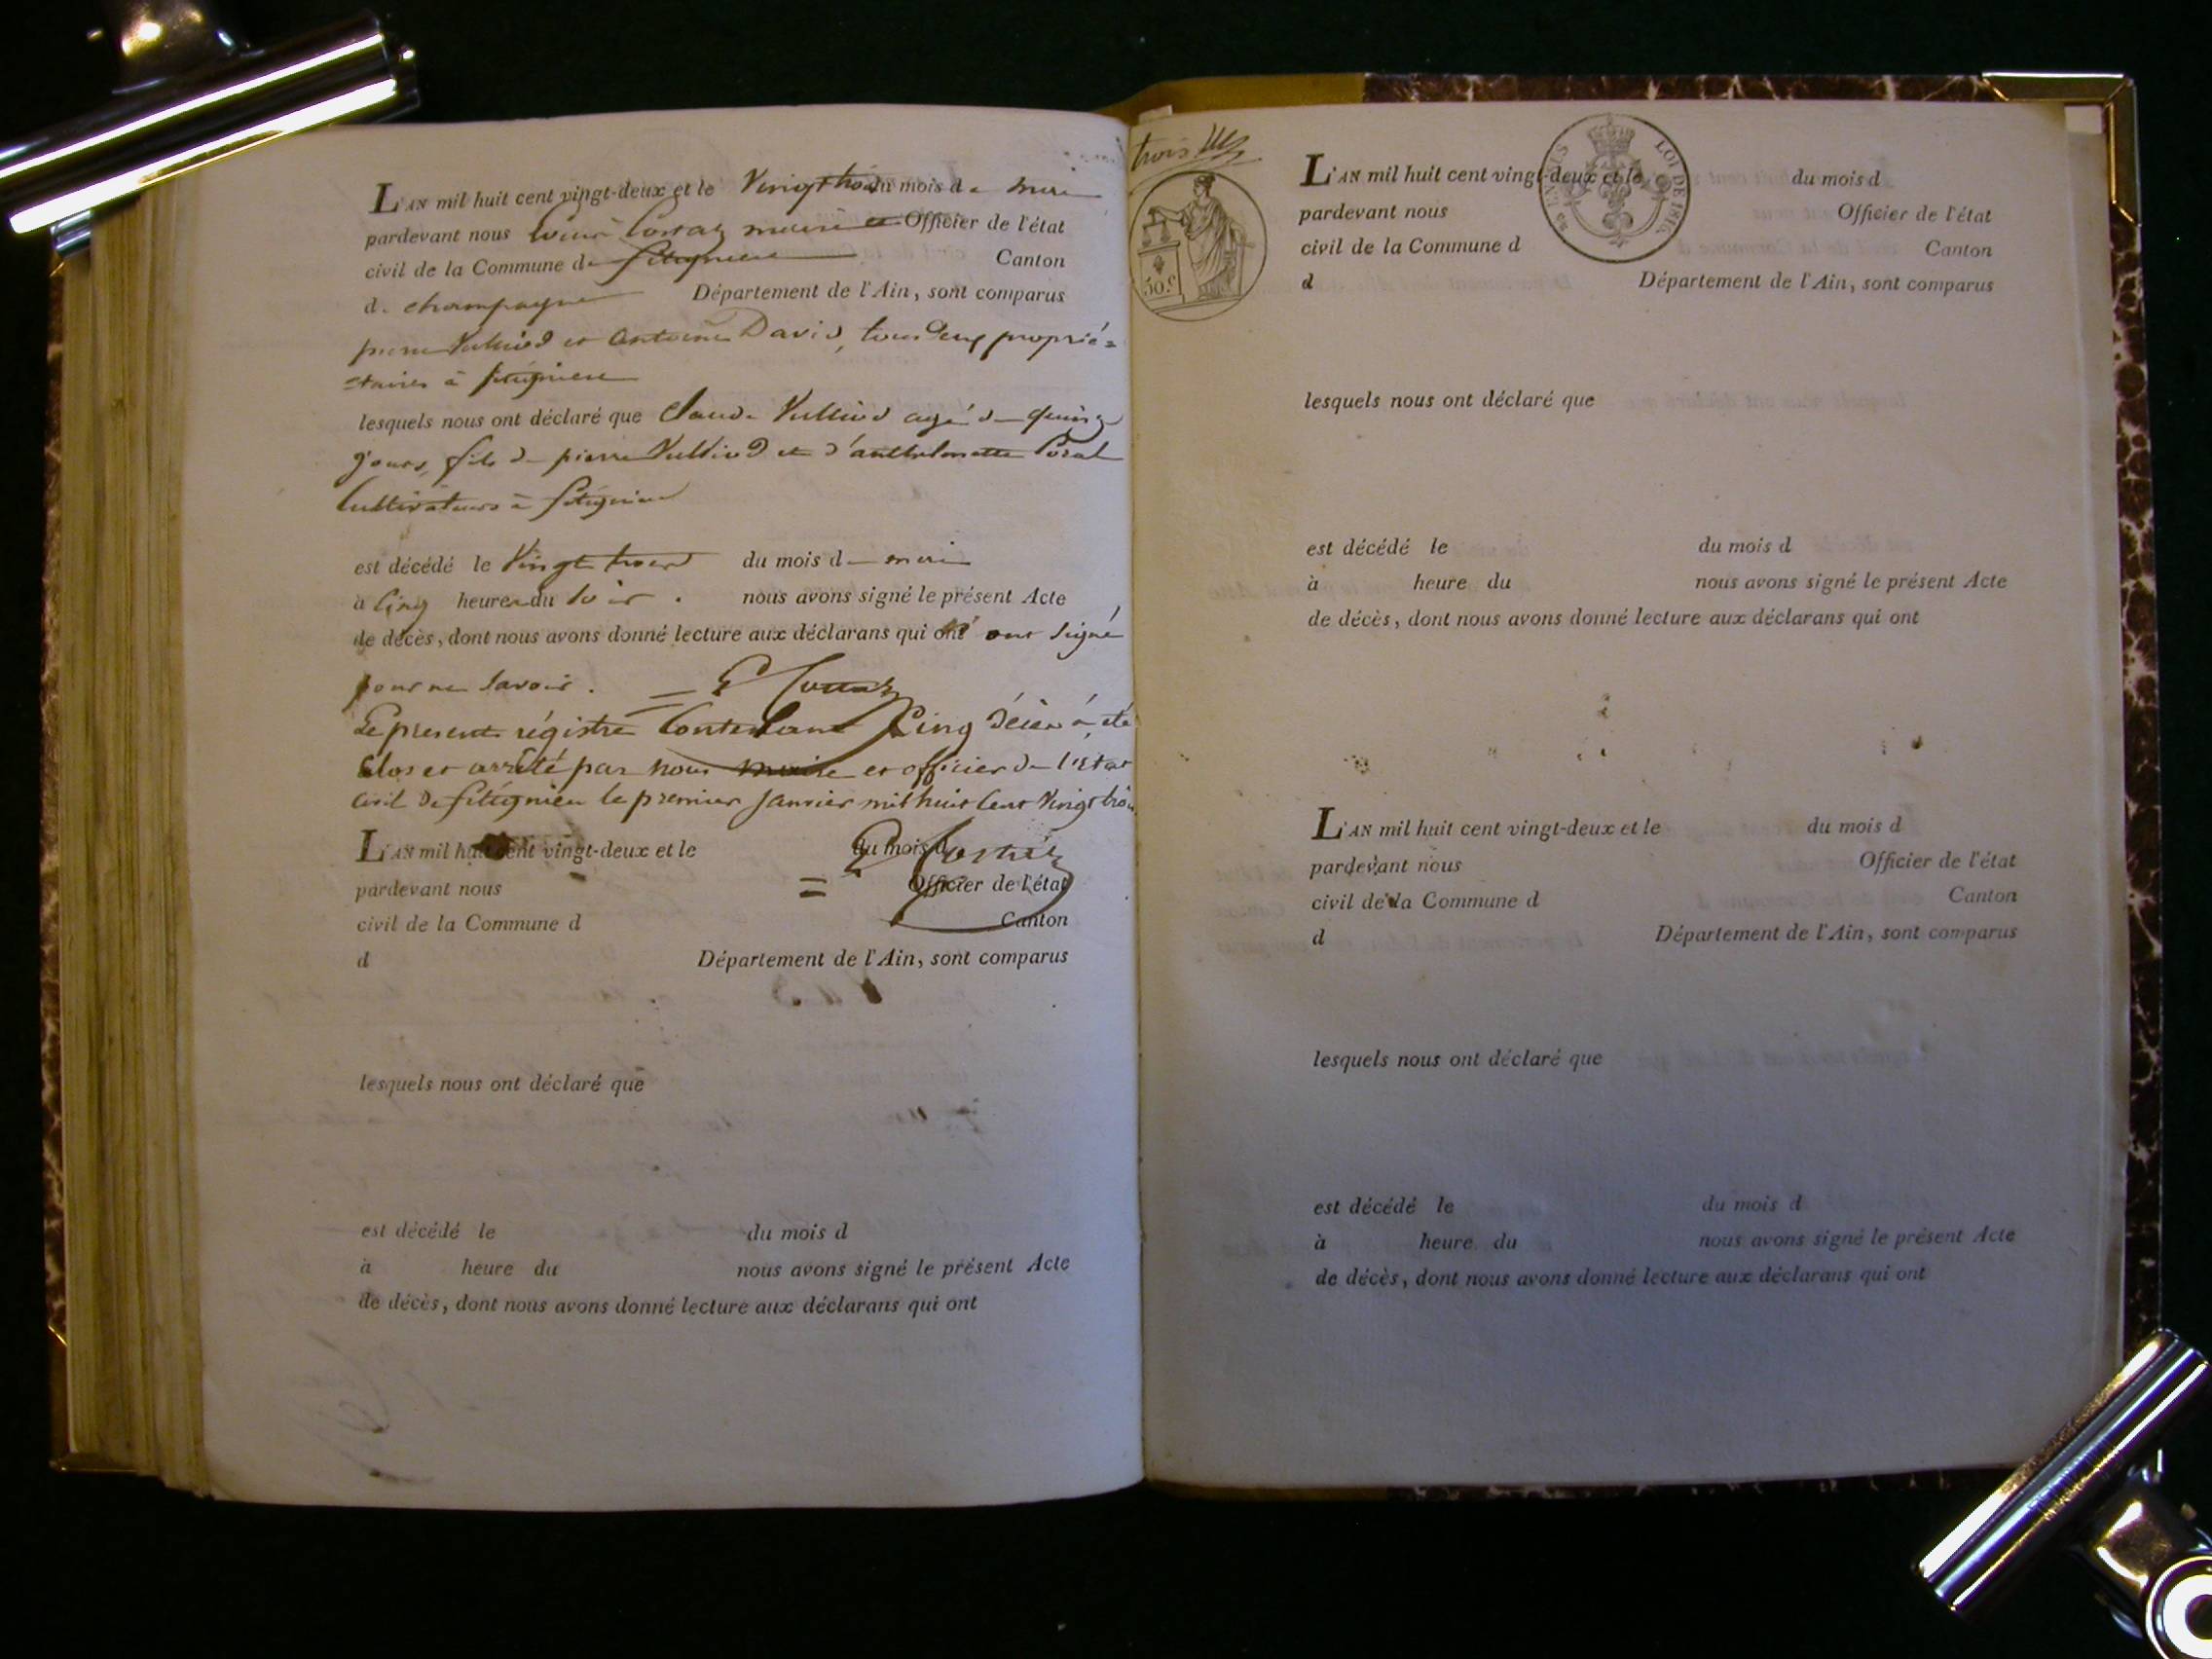 L'AN mil huit cent vingt-deux et le Vingt trois du mois de mai
pardevant nous maire et Officier de l'état
civil de la Commune de fitignieu Canton
de champagne Département de l'Ain, sont comparus
pierre Vulliod et antoine David, tous deux proprié=
=taires à fitignieu
lesquels nous ont déclaré que claude Vulliod agé de quinze
jours, fils de pierre Vulliod et d'anthelmette
Cultivateurs à fitignieu
est décédé le Vingt trois du mois de mai
à cinq heures du soir. nous avons signé le présent Acte
de décès, dont nous avons donné lecture aux déclarans qui ont signé
pour ne savoir.
Le present régistre Contenant Cinq décès à été
Clos et arrêté par nous maire et officier de l'état
civil de fitignieu le premier janvier mil huit Cent Vingt trois
L'AN mil huit cent vingt-deux et le du mois d
pardevant nous Officier de l'état
civil de la Commune d Canton
d Département de l'Ain, sont comparus
lesquels nous ont déclaré que
est décédé le du mois d
à heure du nous avons signé le présent Acte
de décès, dont nous avons donné lecture aux déclarans qui ont
trois
LOI DE 1816
50 c
L'AN mil huit cent vingt-deux et le du mois d
pardevant nous Officier de l'état
civil de la Commune d Canton
d Département de l'Ain, sont comparus
lesquels nous ont déclaré que
est décédé le du mois d
à heure du nous avons signé le présent Acte
de décès, dont nous avons donné lecture aux déclarans qui ont
L'AN mil huit cent vingt-deux et le du mois d
pardevant nous Officier de l'état
civil de la Commune d Canton
d Département de l'Ain, sont comparus
lesquels nous ont déclaré que
est décédé le du mois d
à heure du nous avons signé le présent Acte
de décès, dont nous avons donné lecture aux déclarans qui ont